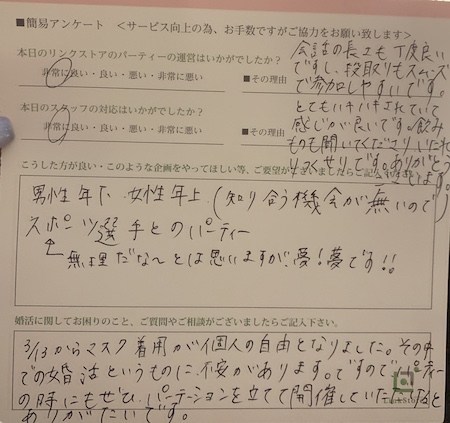 ■簡易アンケート ＜サービス向上の為、お手数ですがご協力をお願い致します＞
本日のリンクストアのパーティーの運営はいかがでしたか?
非常に良い・良い・悪い・非常に悪い ■その理由
会話の長さも丁度良い
ですし、段取りもスムーズ
で参加しやすいです。
本日のスタッフの対応はいかがでしたか?
非常に良い・良い・悪い・非常に悪い ■その理由
とてもハキハキされていて
感じが良いです。飲み
ものも聞いてくださりいたれ
りつくせりです。ありがとう
ございます。
こうした方が良い・このような企画をやってほしい等、ご要望がございましたらご記入下さい。
男性年下 女性年上 (知り合う機会が無いので)
スポーツ選手とのパーティー
無理だな〜とは思いますが、夢!夢です!!
婚活に関してお困りのこと、ご質問やご相談がございましたらご記入下さい。
3/13からマスク着用が個人の自由となりました。その中
での婚活というものに不安があります。ですのでパーティー
の時にもぜひ、パーテーションを立てて開催していただけると
ありがたいです。